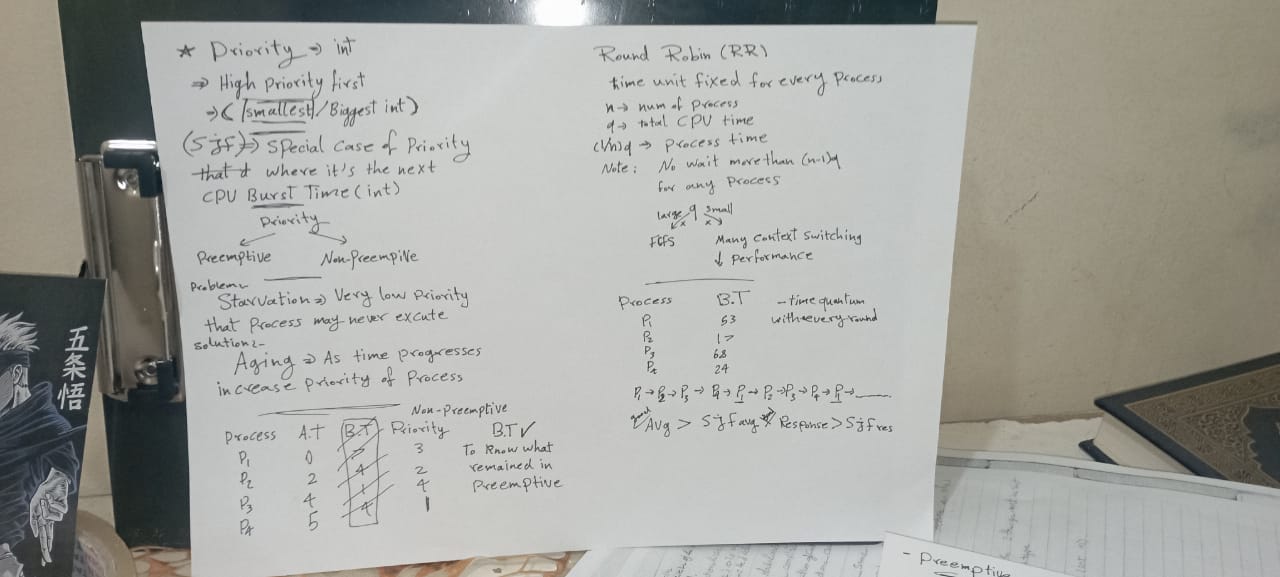 * Priority → int
⇒ High Priority first
→ (smallest/Biggest int)
(Sjf) ⇒ Special Case of Priority
that d where it's the next
CPU Burst Time (int)
Priority
Preemptive Non-Preempive
Problem:-
Starvation ⇒ Very low Priority
that Process may never excute
Solution:-
Aging ⇒ As time progresses
increase priority of Process
Non-Preemptive
Process A.T B.T Priority B.T ✓
P1 0 7 3 To Know what
P2 2 4 2 remained in
P3 4 1 4 Preemptive
P4 5 4 1
Round Robin (RR)
time unit fixed for every Process
n → num of Process
q → total CPU time
(1/n)q → Process time
Note: No wait more than (n-1)q
for any Process
large q small
FCFS Many Context Switching
↓ Performance
Process B.T - time quantum
P1 53 with every round
P2 17
P3 68
P4 24
P1 → P2 → P3 → P4 → P1 → P2 → P3 → P4 → P1 →
Avg > Sjf avg Response > Sjf res
五条悟
- Preemptive